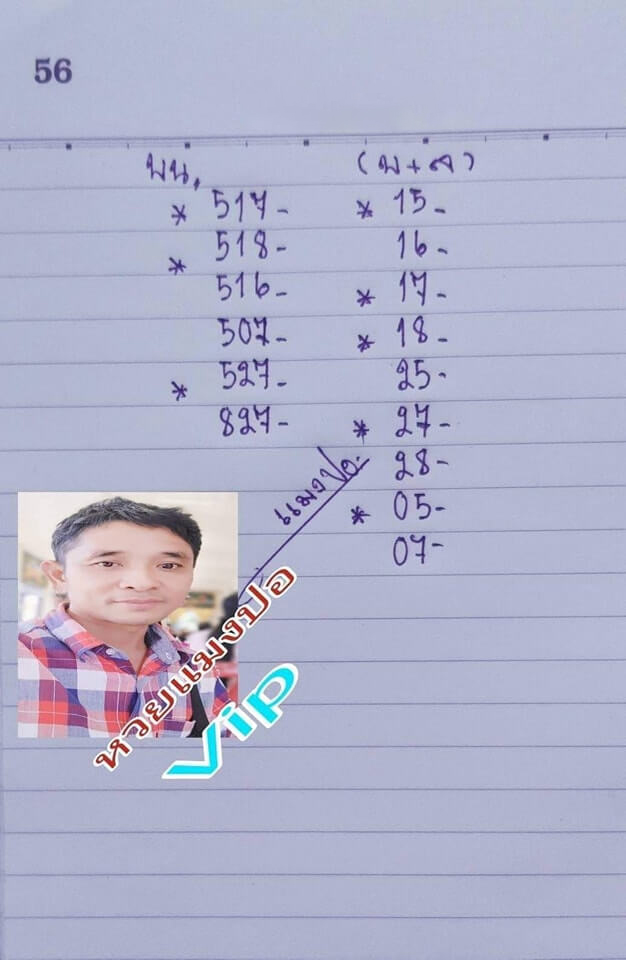 56
บน. (บ+ล)
* 517- * 15-
518- 16-
* 516- * 17-
507- * 18-
* 527- 25-
827- * 27-
28-
* 05-
07-
แมงปอ
หวยแมงปอ
Vip